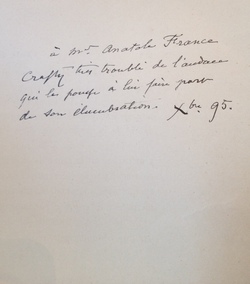 à Mr. Anatole France
Crafty très troublé de l'audace
qui le pousse à lui faire part
de son élucubration. Xbre 95.